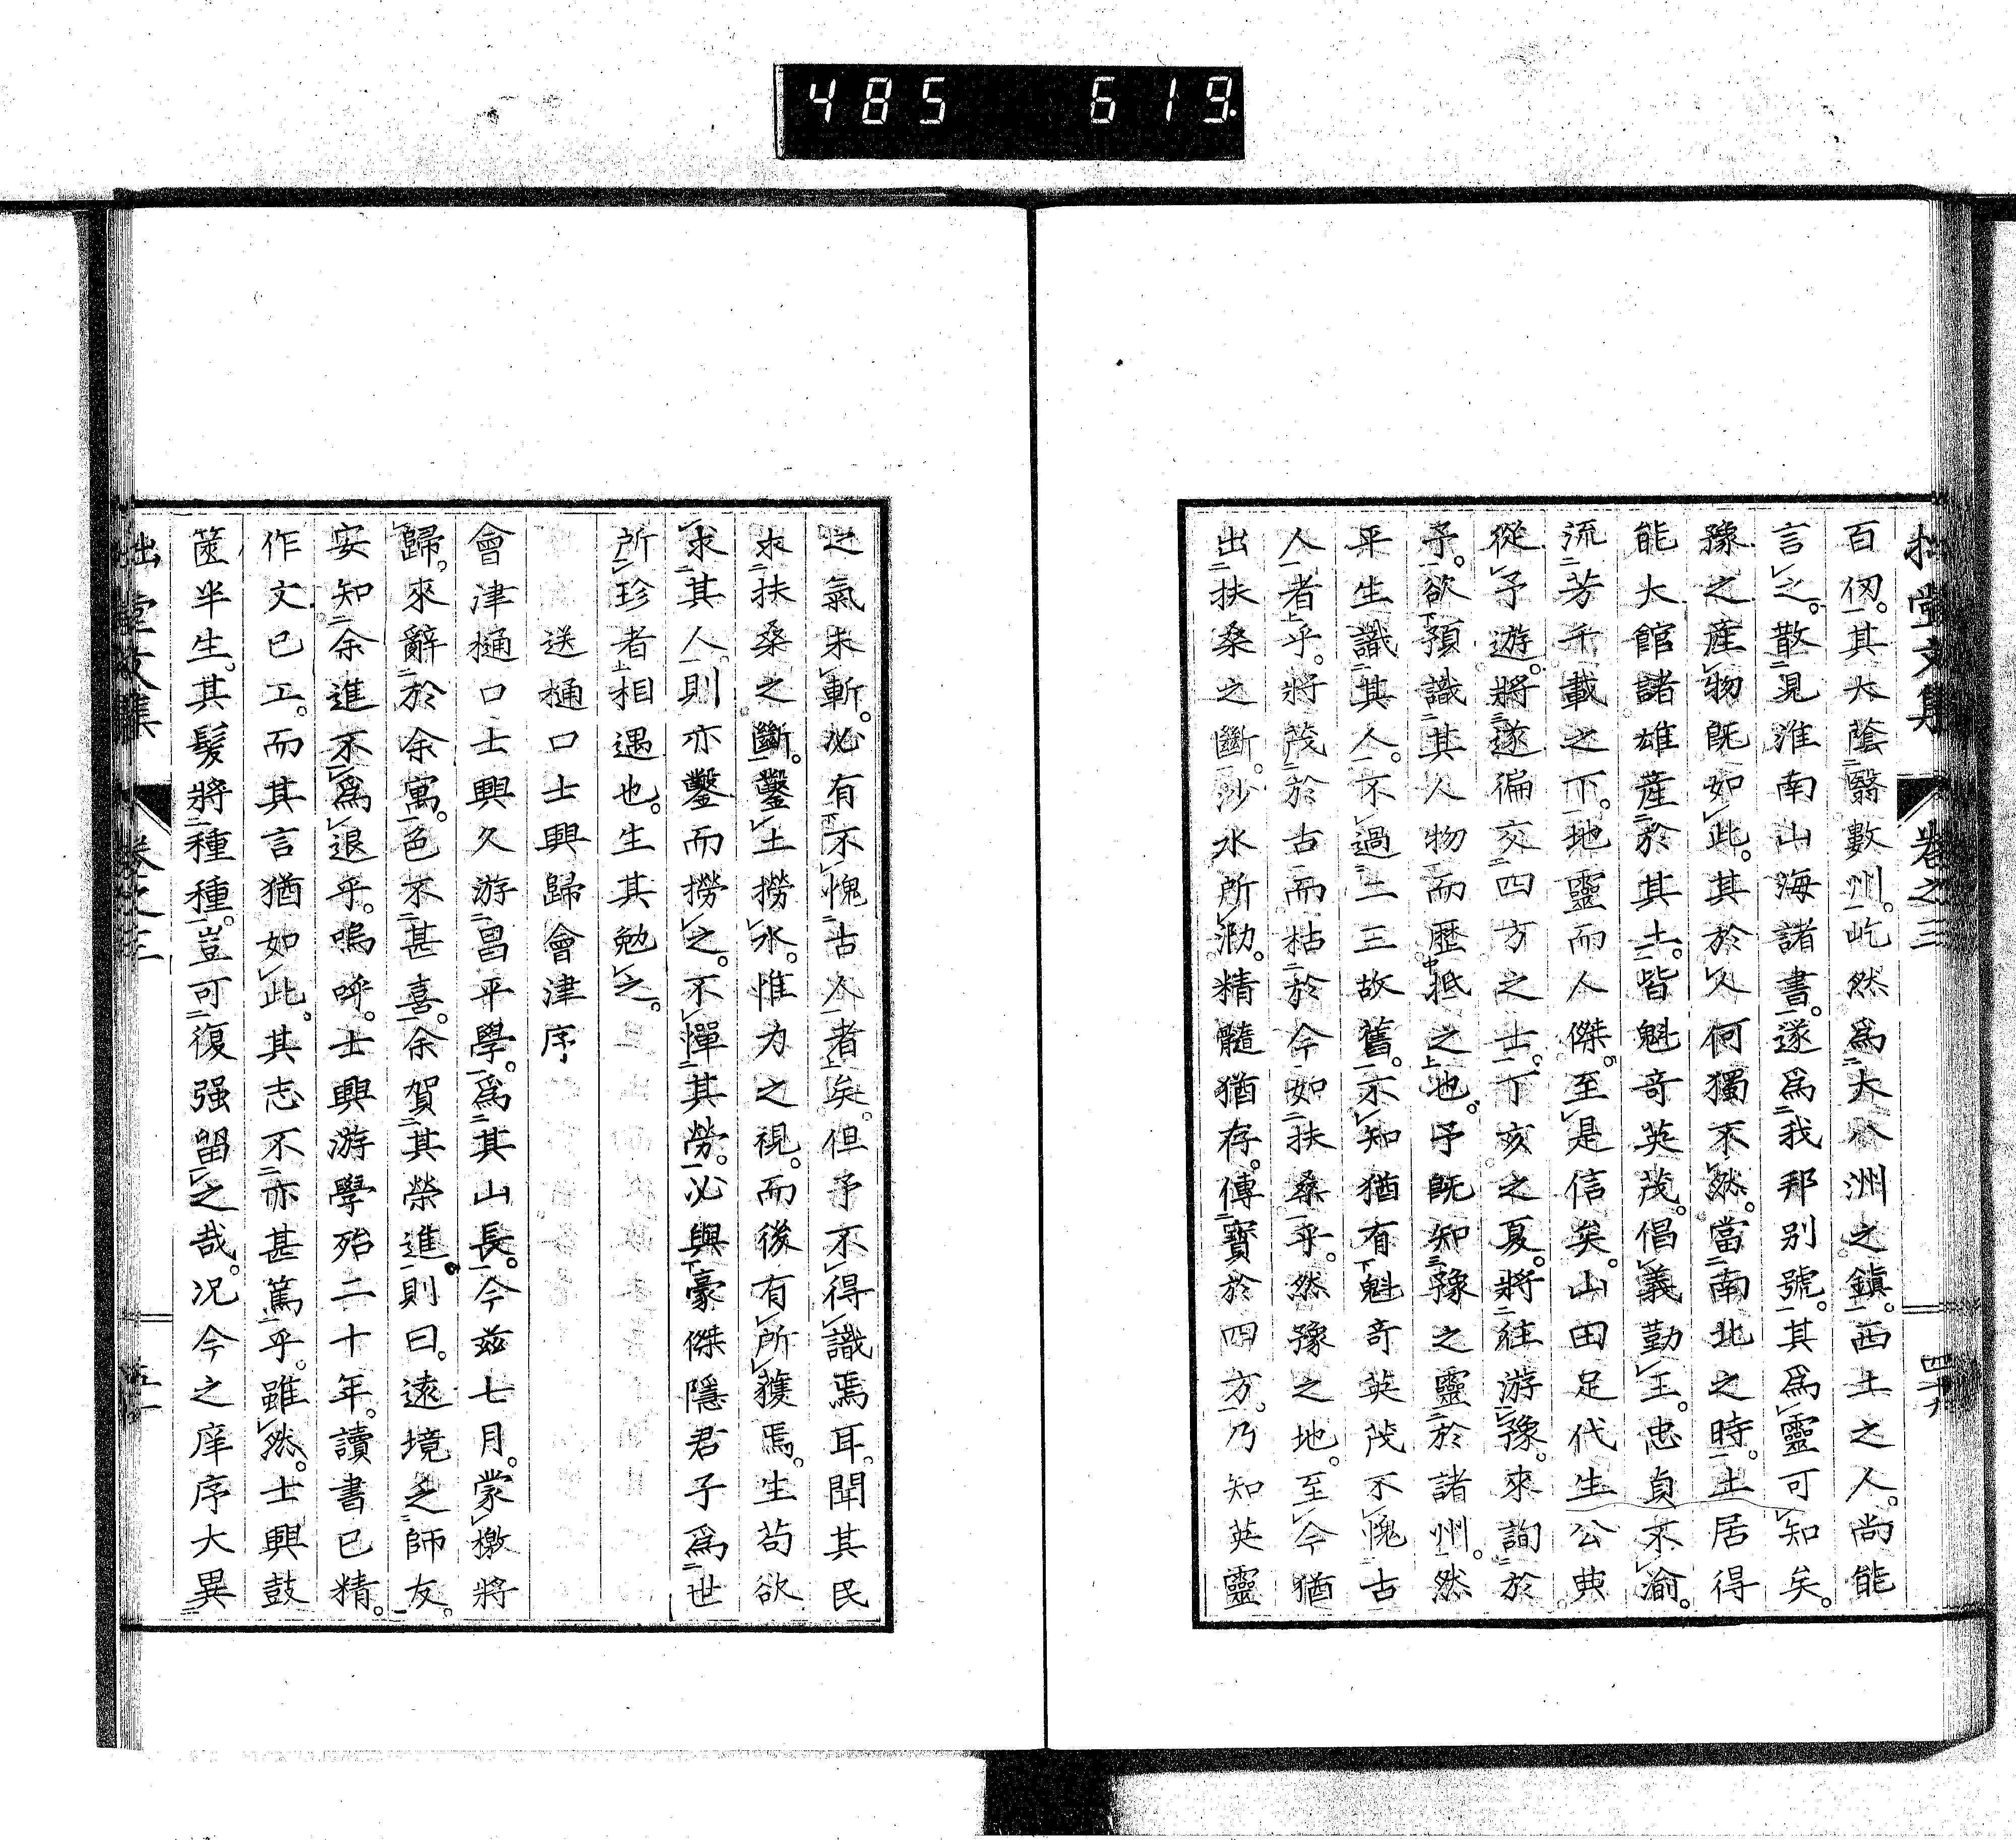 485 619
拙堂文集 卷之三 四十九
百仞。其大蔭翳數州。屹然爲大八洲之鎮。西土之人。尚能
言之。散見淮南山海諸書。遂爲我邦別號。其爲靈可知矣。
豫之産物既如此。其於人何獨不然。當南北之時。土居得
能大館諸雄産於其土。皆魁奇英茂。倡義勤王。忠貞不渝。
流芳千載之下。地靈而人傑。至是信矣。山田足代生公典
從予遊。將遂徧交四方之士。丁亥之夏。將往游豫。來詢於
予。欲預識其人物而歷抵之也。予既知豫之靈於諸州。然
平生識其人。不過二三故舊。不知猶有魁奇英茂不愧古
人者乎。將茂於古而枯於今如扶桑乎。然豫之地。至今猶
出扶桑之斷。沙水所泐。精髓猶存。傳寶於四方。乃知英靈
之氣未斬。必有不愧古人者矣。但予不得識焉耳。聞其民
求扶桑之斷。鑿土撈水。惟力之視。而後有所獲焉。生苟欲
求其人。則亦鑿而撈之。不憚其勞。必與豪傑隱君子爲世
所珍者相遇也。生其勉之。
送樋口士興歸會津序
會津樋口士興久游昌平學。爲其山長。今茲七月。蒙檄將
歸。來辭於余寓。色不甚喜。余賀其榮進。則曰。遠境乏師友。
安知余進不爲退乎。嗚呼。士興游學殆二十年。讀書已精。
作文已工。而其言猶如此。其志不亦甚篤乎。雖然。士興鼓
篋半生。其髮將種種。豈可復强留之哉。况今之庠序大異
拙堂文集 卷之三 五十